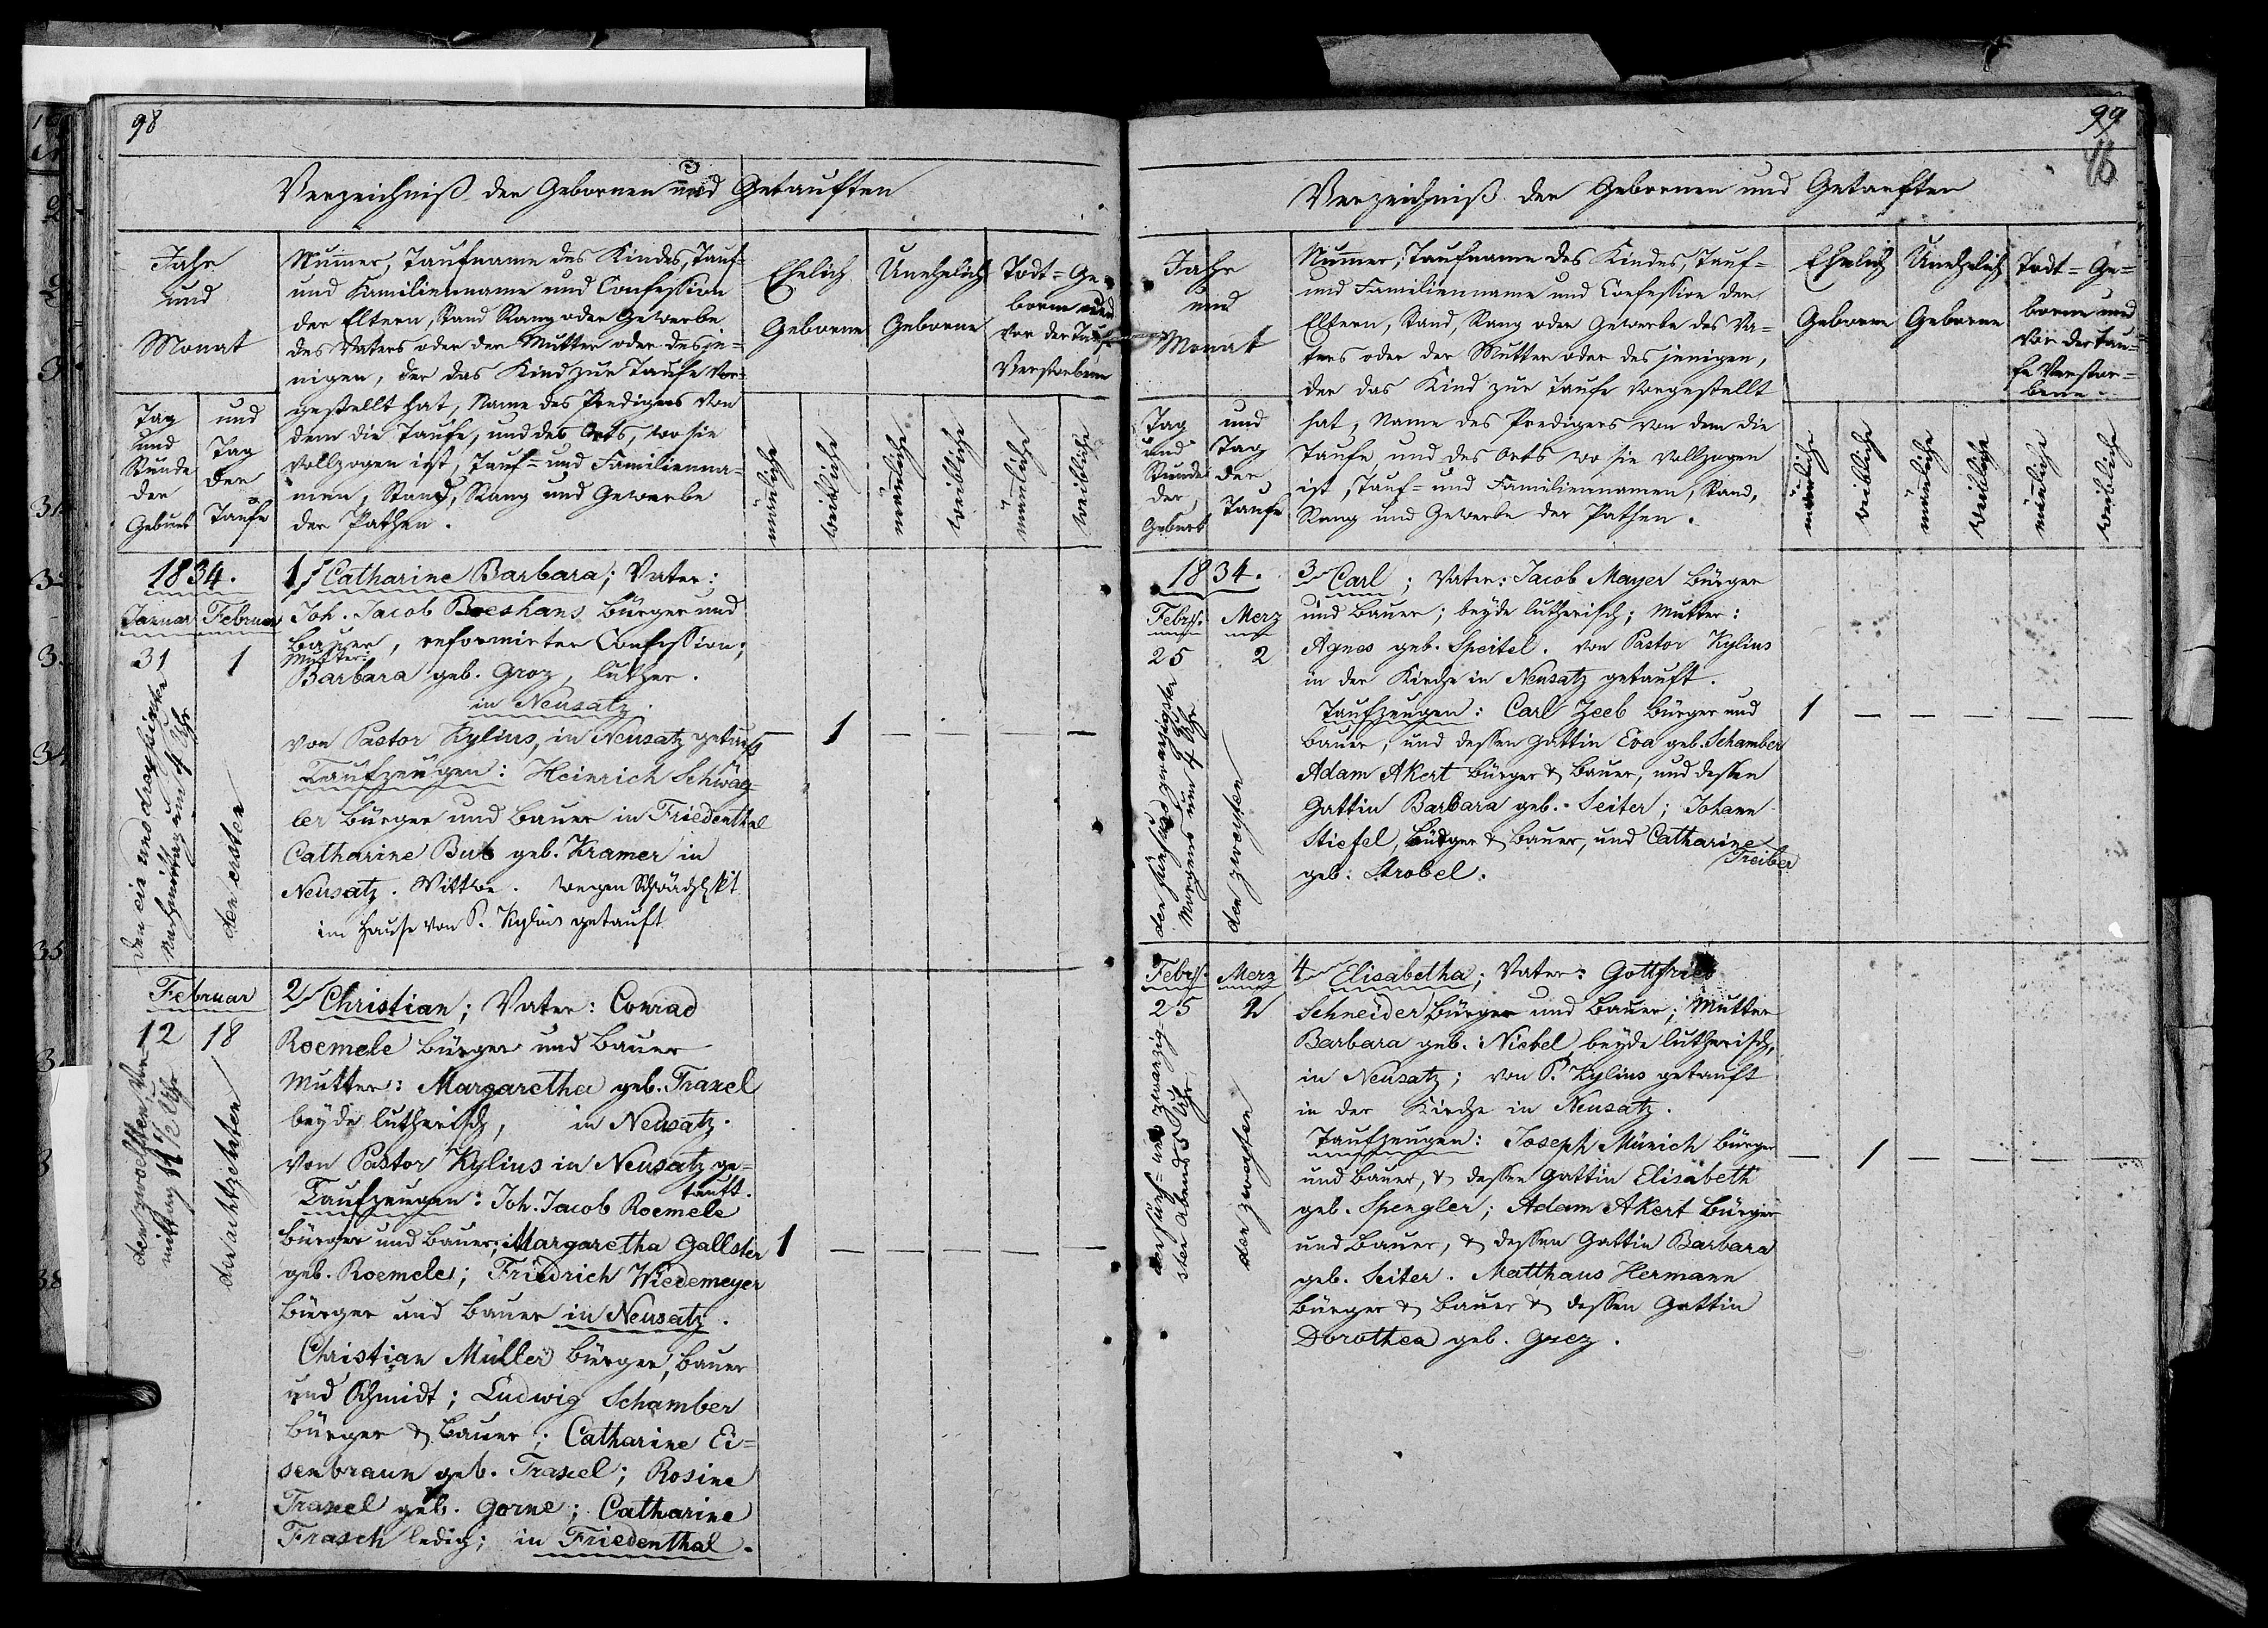 98
Verzeichniß der Gebornen und Getauften
Jahr
und
Monat
Tag
und
Stunde
der
Geburt
und
Tag
der
Taufe
Numer, Taufname des Kindes, Tauf-
und Familienname und Confession
der Eltern, Stand Rang oder Gewerbe
des Vaters oder der Mutter oder desje-
nigen, der das Kind zur Taufe vor-
gestellt hat, Name des Predigers von
dem die Taufe, und des Orts, wo sie
vollzogen ist, Tauf- und Familienna-
men, Stand, Rang und Gewerbe
der Pathen.
Ehelich
Geborne
Unehelich
Geborne
Todt-Ge-
borne und
vor der Taufe
Verstorbene
mänliche
weibliche
mänliche
weibliche
mänliche
weibliche
1834.
Januar Februar
31 1
den ein und dreyßigsten
Nachmittag um 4 Uhr
den ersten
1 Catharine Barbara; Vater:
Joh. Jacob Boeshans Bürger und
Bauer, reformirter Confession;
Mutter:
Barbara geb. Groz, luther.
in Neusatz.
von Pastor Kylius, in Neusatz getauft
Taufzeugen: Heinrich Schwäg-
ler Bürger und Bauer in Friedenthal
Catharine But geb. Kramer in
Neusatz. Wittwe. wegen Schwächlkt
im Hause von P. Kylius getauft
— 1 — — — —
Februar
12 18
den zwölften Vor-
mittag 11 1/2 Uhr
den achtzehnten
2 Christian; Vater: Conrad
Roemele Bürger und Bauer
Mutter: Margaretha geb. Traxel
beyde lutherisch, in Neusatz.
von Pastor Kylius in Neusatz ge-
tauft.
Taufzeugen: Joh. Jacob Roemele
Bürger und Bauer; Margaretha Gallster
geb. Roemele; Friedrich Wiedemeyer
Bürger und Bauer in Neusatz.
Christian Müller Bürger, Bauer
und Schmidt; Ludwig Schamber
Bürger & Bauer; Catharine Ei-
senbraun geb. Traxel; Rosine
Traxel geb. Gorne; Catharine
Frasch ledig; in Friedenthal.
1 — — — — —
99
Verzeichniß der Gebornen und Getauften
Jahr
und
Monat
Tag
und
Stunde
der
Geburt
und
Tag
der
Taufe
Numer, Taufname des Kindes, Tauf-
und Familienname und Confession der
Eltern, Stand, Rang oder Gewerbe des Va-
ters oder der Mutter oder desjenigen,
der das Kind zur Taufe vorgestellt
hat, Name des Predigers von dem die
Taufe, und des Orts wo sie vollzogen
ist, Tauf- und Familiennamen, Stand,
Rang und Gewerbe der Pathen.
Ehelich
Geborne
Unehelich
Geborne
Todt-Ge-
borne und
vor der Tau-
fe Verstor-
bene.
mänliche
weibliche
mänliche
weibliche
mänliche
weibliche
1834.
Febry. Merz
25 2
den fünf und zwanzigsten
Morgens um 4 Uhr
den zweyten
3 Carl; Vater: Jacob Mayer Bürger
und Bauer; beyde lutherisch; Mutter:
Agnes geb. Speitel. von Pastor Kylius
in der Kirche in Neusatz getauft.
Taufzeugen: Carl Zeeb Bürger und
Bauer, und dessen Gattin Eva geb. Schamber
Adam Akert Bürger & Bauer, und dessen
Gattin Barbara geb. Seiter; Johann
Stiefel, Bürger & Bauer, und Catharine
Treiber
geb. Strobel.
1 — — — — —
Febry. Merz
25 2
den fünf- und zwanzig-
sten Abends 5 Uhr
den zweyten
4 Elisabetha; Vater: Gottfried
Schneider Bürger und Bauer; Mutter
Barbara geb. Niebel, beyde lutherisch,
in Neusatz; von P. Kylius getauft
in der Kirche in Neusatz.
Taufzeugen: Joseph Münich Bürger
und Bauer, & dessen Gattin Elisabeth
geb. Spengler; Adam Akert Bürger
und Bauer, & dessen Gattin Barbara
geb. Seiter. Matthaus Hermann
Bürger & Bauer & dessen Gattin
Dorothea geb. Grez.
— 1 — — — —